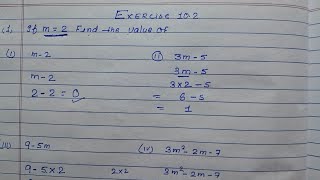 Exercise 10.2
1. If m = 2 find the value of
(i) m - 2
m - 2
2 - 2 = 0
(ii) 3m - 5
3m - 5
3 × 2 - 5
= 6 - 5
= 1
(iii) 9 - 5m
9 - 5 × 2
2×2
(iv) 3m² - 2m - 7
3m² - 2m - 7